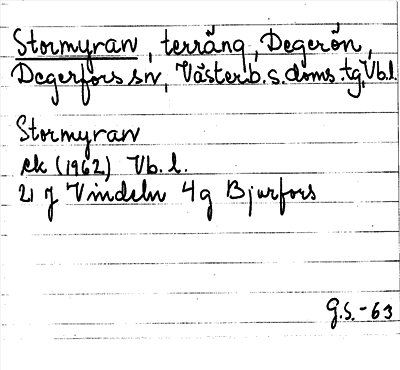 Stormyran, terräng, Degerön,
Degerfors sn, Västerb. s. doms. tg, Vb.l.
Stormyran
ek (1962) Vb. l.
21 J Vindeln 4g Bjurfors
G.S.-63